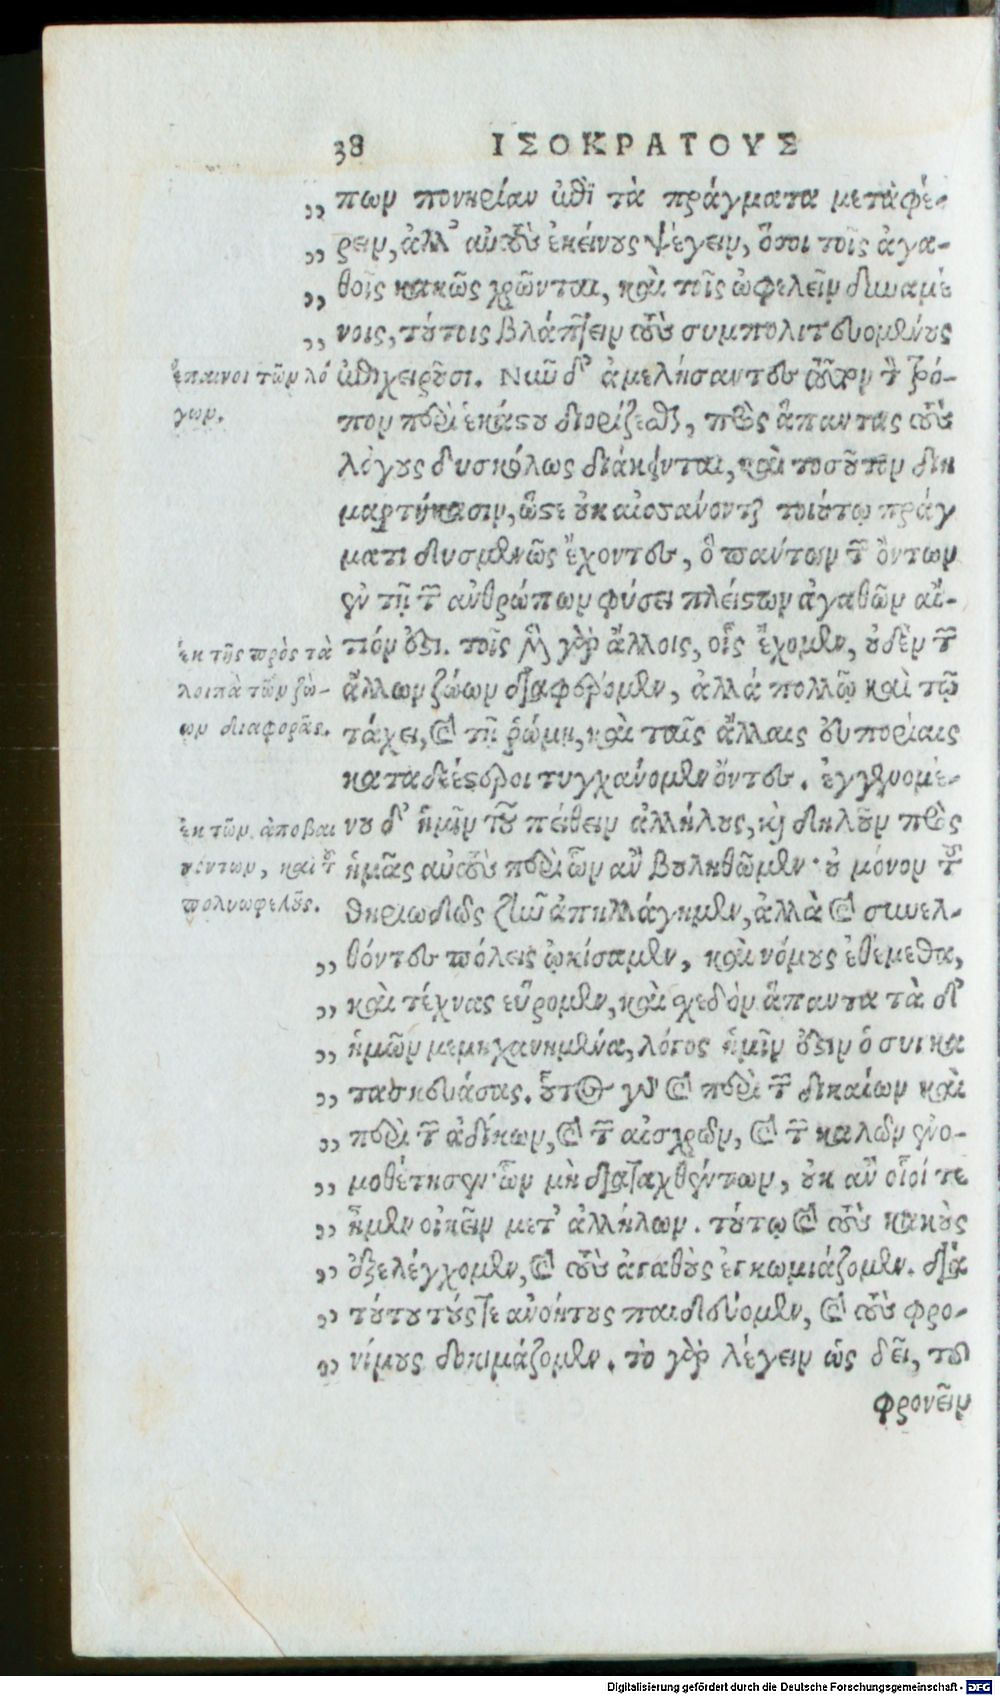 38 ΙΣΟΚΡΑΤΟΥΣ
„ πων πονηρίαν ἐπὶ τὰ πράγματα μεταφέ-
„ ρειν, ἀλλ' αὐτοὺς ἐκείνους ψέγειν, ὅσοι τοῖς ἀγα-
„ θοῖς κακῶς χρῶνται, καὶ τοῖς ὠφελεῖν δυναμέ
„ νοις, τούτοις βλάπτειν τοὺς συμπολιτευομένους
ἐπιχειροῦσι. Νῦν δ' ἀμελήσαντες τοῦτον τὸν τρό-
πον περὶ ἑκάστου διορίζεσθαι, πρὸς ἅπαντας τοὺς
λόγους δυσκόλως διάκεινται, καὶ τοσοῦτον διη
μαρτήκασιν, ὥστε οὐκ αἰσθάνονται τοιούτῳ πράγ
ματι δυσμενῶς ἔχοντες, ὃ πάντων τῶν ὄντων
ἐν τῇ τῶν ἀνθρώπων φύσει πλείστων ἀγαθῶν αἴ-
τιόν ἐστι. τοῖς μὲν γὰρ ἄλλοις, οἷς ἔχομεν, οὐδὲν τῶν
ἄλλων ζώων διαφέρομεν, ἀλλὰ πολλῷ καὶ τῷ
τάχει, καὶ τῇ ῥώμῃ, καὶ ταῖς ἄλλαις εὐπορίαις
καταδεέστεροι τυγχάνομεν ὄντες. ἐγγενομέ-
νου δ' ἡμῖν τοῦ πείθειν ἀλλήλους, καὶ δηλοῦν πρὸς
ἡμᾶς αὐτοὺς περὶ ὧν ἂν βουληθῶμεν· οὐ μόνον τοῦ
θηριωδῶς ζῆν ἀπηλλάγημεν, ἀλλὰ καὶ συνελ-
„ θόντες πόλεις ᾠκίσαμεν, καὶ νόμους ἐθέμεθα,
„ καὶ τέχνας εὕρομεν, καὶ σχεδὸν ἅπαντα τὰ δι'
„ ἡμῶν μεμηχανημένα, λόγος ἡμῖν ἐστιν ὁ συγκα
„ τασκευάσας. οὗτος γὰρ καὶ περὶ τῶν δικαίων καὶ
„ περὶ τῶν ἀδίκων, καὶ τῶν αἰσχρῶν, καὶ τῶν καλῶν ἐνο-
„ μοθέτησεν· ὧν μὴ διαταχθέντων, οὐκ ἂν οἷοί τε
„ ἦμεν οἰκεῖν μετ' ἀλλήλων. τούτῳ καὶ τοὺς κακοὺς
„ ἐξελέγχομεν, καὶ τοὺς ἀγαθοὺς ἐγκωμιάζομεν. διὰ
„ τούτου τούς τε ἀνοήτους παιδεύομεν, καὶ τοὺς φρο-
„ νίμους δοκιμάζομεν. τὸ γὰρ λέγειν ὡς δεῖ, τοῦ
φρονεῖν
ἔπαινοι τῶν λό
γων.
ἐκ τῆς πρὸς τὰ
λοιπὰ τῶν ζώ-
ων διαφορᾶς.
ἐκ τῶν ἀποβαι
νόντων, καὶ τοῦ
πολυωφελοῦς.
Digitalisierung gefördert durch die Deutsche Forschungsgemeinschaft - DFG